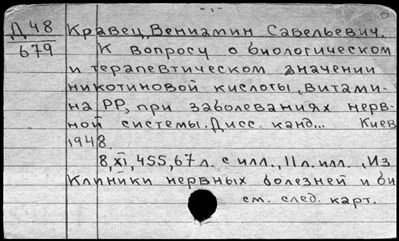 - 1 -
Д 48 Кравец, Вениамин Савельевич.
679 К вопросу о биологическом
и терапевтическом значении
никотиновой кислоты, витами-
на РР, при заболеваниях нерв-
ной системы. Дисс. канд... Киев
1948.
8, XI, 455, 67 л. с илл., 11 л. илл., Из
Клиники нервных болезней и би
см. след. карт.